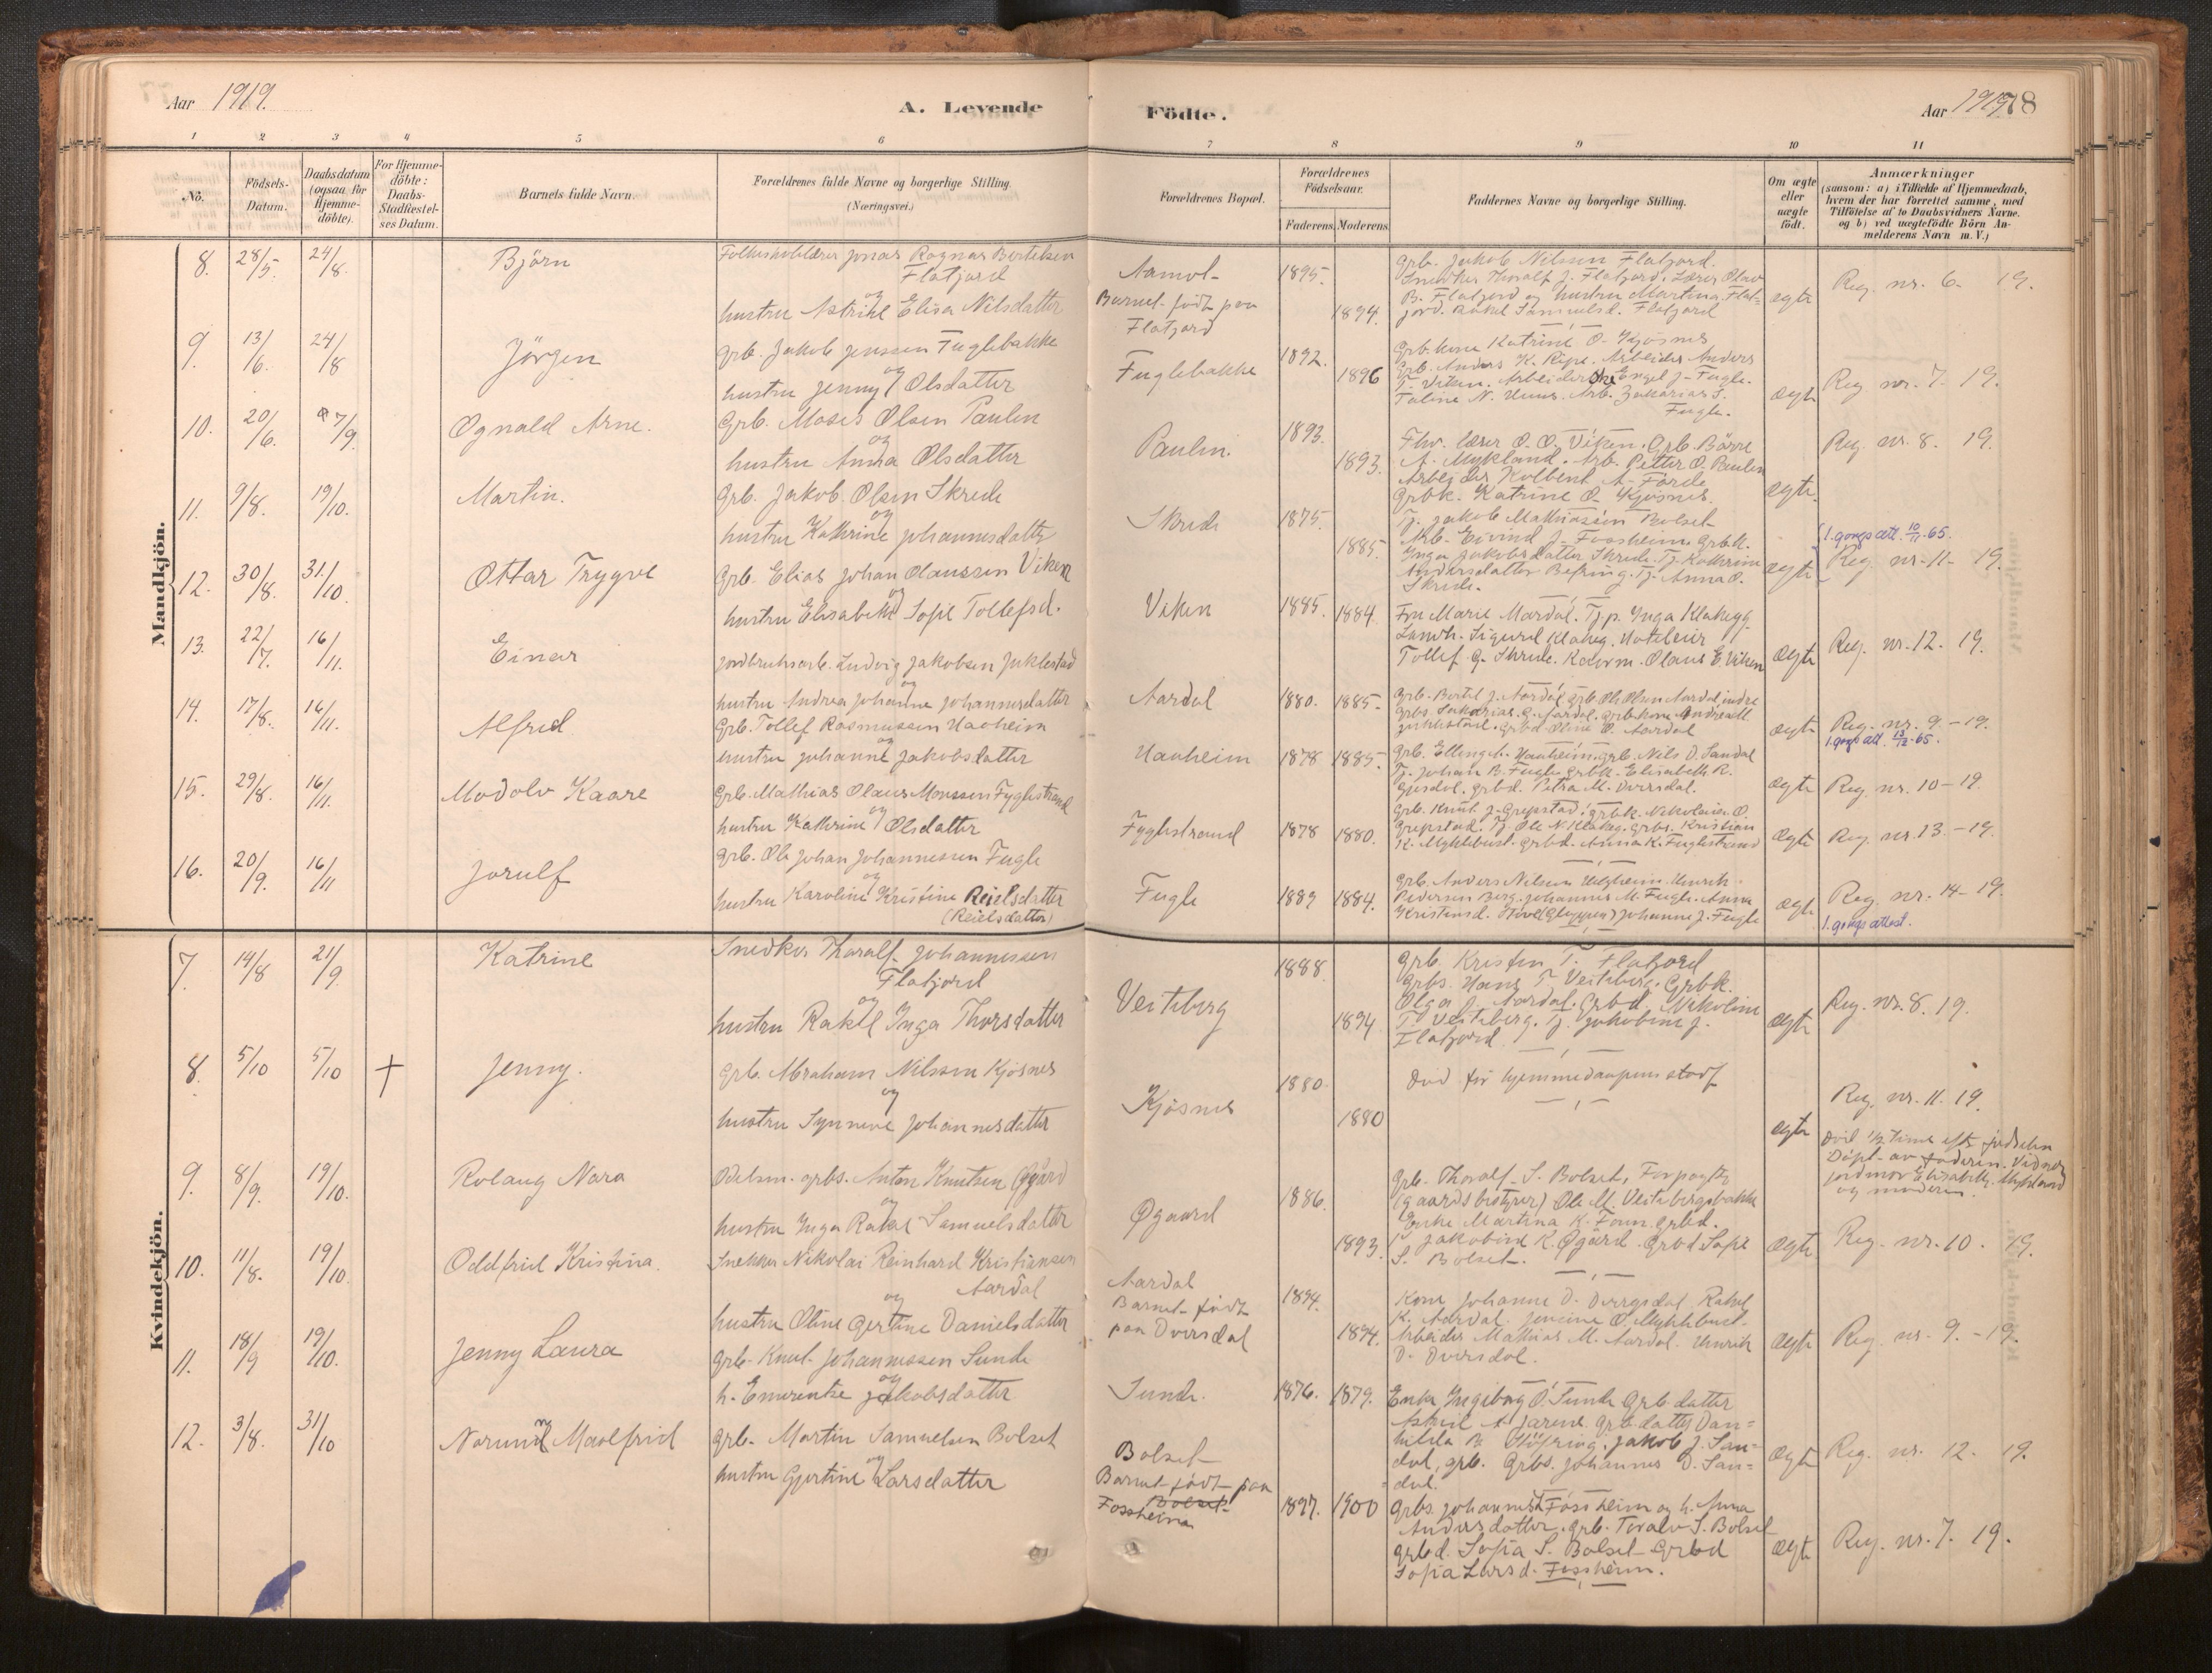 Aar 1919.
A. Levende
Födte.
Aar 1919
78
1 2 3 4 5 6 7 8 9 10 11
No.
Födsels-
Datum.
Daabsdatum
(ogsaa for
Hjemme-
döbte).
For Hjemme-
döbte:
Daabs-
Stadfæstel-
ses Datum.
Barnets fulde Navn.
Forældrenes fulde Navne og borgerlige Stilling.
(Næringsvei.)
Forældrenes Bopæl.
Forældrenes
Födselsaar.
Faderens. Moderens.
Faddernes Navne og borgerlige Stilling.
Om ægte
eller
uægte
födt.
Anmærkninger
(saasom: a) i Tilfælde af Hjemmedaab,
hvem der har forrettet samme, med
Tilföielse af to Daabsvidners Navne.
og b) ved uægtefödte Börn An-
melderens Navn m. V.)
Mandkjön.
8. 28/5. 24/8. Björn
Folkeskolelærer Jonas Ragnar Bertelsen
Flatjord
og
hustru Astrid Elisa Nilsdatter
Aamot
Barnet födt paa
Flatjord
1895.
1894.
Grb. Jakob Nilsen Flatjord.
Snedker Thoralf J. Flatjord. Lærer Olav
B. Flatjord og hustru Martina Flat-
jord. Rakel Samuelsd. Flatjord
egte
Reg. nr. 6. 19.
9. 13/6. 24/8 Jörgen
Grb. Jakob Jenssen Fuglebakke
og
hustru Jenny Olsdatter
Fuglebakke
1892.
1896
Grb.kone Katrine O. Kjösnes
Grb. Anders K. Ripe. Arbeider Anders
T. Viken. Arbeiderske Engel J. Fugle.
Taline N. Arb. Zakarias S.
Fugle.
ægte
Reg. nr. 7. 19.
10. 20/6. 7/9. Ognald Arne.
Grb. Moses Olsen Paulen
og
hustru Anna Olsdatter
Paulen.
1893.
1893.
Fhv. lærer O. O. Viken. Grb. Börre
A. Mykland. Arb. Petter O. Paulen
Arbeider Kolbent A. Förde
Grbk. Katrine O. Kjösnes.
egte.
Reg. nr. 8. 19.
11. 9/8. 19/10. Martin.
Grb. Jakob Olsen Skrede
og
hustru Kathrine Johannesdatter
Skrede
1875.
1885.
Tj. Jakob Mathiassen Bolset
Arb. Eivind J. Fossheim. Grbk.
Inga Jakobsdatter Skrede. Tj. Kathrine
Andersdatter Befring. Tj. Anna O.
Skrede.
egte
1. gongs att. 10/11-65.
Reg. nr. 11- 19.
12. 30/8. 31/10. Ottar Trygve
Grb. Elias Johan Olaussen Viken
og
hustru Elisabeth Sofie Tollefsd.
Viken
1885. 1884.
Fru Marie Mardal. Tj.p. Inga Klakegg
Landh. Sigurd Klakeg. Hoteleier
Tollef G. Skrede. Olaus E. Viken
ægte
Reg. nr. 12. 19.
13. 22/7. 16/11. Einar
Jordbruksarb. Ludvig Jakobsen Juklestad
og
hustru Andrea Johanne Johannesdatter
Aardal
1880. 1885.
Grb. Bertel J. Aardal grb. Ole Olsen Aardal indre
Grbs. Sakarias G. Aardal. grbkone Andrea M.
Juklestad. grbd Oline O. Aardal
ægte
Reg. nr. 9.-19.
1. gongs att. 13/12-65.
14. 17/8. 16/11. Alfred.
Grb. Tollef Rasmussen Hauheim
og
hustru Johanne Jakobsdatter
Hauheim
1878 1885.
Grb. Elling A. Hauheim. grb. Nils D. Sandal
Tj. Johan B. Fugle. grbk. Elisabeth R.
Gjesdal. grbd. Petra M. Dvergsdal.
ægte
Reg. nr. 10-19.
15. 29/8. 16/11. Modolv Kaare
Grb. Mathias Olaus Monssen Fyglestrand
og
hustru Kathrine Olsdatter
Fyglestrand
1878 1880.
Grb. Knut J. Grepstad; grbk. Nikolaia O.
Grepstad. Tj. Ole N. Klakeg. Grbs. Kristian
K. Myklebust. Grbd. Anna K. Fuglestrand
ægte
Reg. nr. 13.-19.
16. 20/9. 16/11 Jorulf
Grb. Ole Johan Johannessen Fugle
og
hustru Karoline Kristine Reielsdatter
(Reielsdatter)
Fugle
1889 1884.
Grb. Anders Nilsen Helgheim. Henrik
Pedersen Berg. Johannes M. Fugle. Anna
Kristensd. (Gloppen) Johanne J. Fugle
ægte
Reg. nr. 14-19.
1. gongs attest.
Kvindekjön.
7. 14/8 21/9. Katrine
Snedker Thoralf Johannessen
Flatjord
og
hustru Rakel Inga Thorsdatter
Veiteberg
1888.
1894
Grb. Kristen T. Flatjord
Grbs. Hans T. Veiteberg. Grbk.
Olga J. Aardal. Grbd. Nikoline
T. Veiteberg. Tj. Jakobine J.
Flatjord.
ægte
Reg. nr. 8. 19.
8. 5/10 5/10 + Jenny.
Grb. Abraham Nilssen Kjösnes
og
hustru Synneve Johannesdatter
Kjösnes
1880.
1880
Död för hjemmedaapen stadf
ægte
Reg. nr. 11. 19.
Död 1/2 time efter födselen
Döpt av faderen. Vidner
jordmor Elisabeth Mykland
og moderen.
9. 8/9. 19/10. Rolaug Nora
Odelsm. grbs. Anton Knutsen Øgård
og
hustru Inga Rakel Samuelsdatter
Øgaard
1886.
1893.
Grb. Thoralf S. Bolset, Forpagter
(gaardsbestyrer) Ole M. Veitebergsbakke
Enke Martina K. Fonn. grbd.
Jakobine K. Øgård. Grbd Sofie
S. Bolset.
ægte
Reg. nr. 10. 19.
10. 11/8. 19/10. Oddfrid Kristina.
Snekker Nikolai Reinhard Kristiansen
Aardal
og
hustru Oline Gertine Danielsdatter
Aardal
Barnet födt
paa Dversdal
1894.
1894.
Kone Johanne D. Dvergsdal Rakel
K. Aardal. Jensine O. Myklebust.
Arbeider Mathias M. Aardal. Henrik
D. Dversdal.
ægte
Reg. nr. 9.-19.
11. 18/9 19/10. Jenny Laura
Grb. Knut Johannessen Sunde
og
h. Emerentse Jakobsdatter
Sunde.
1876. 1879.
Enke Ingeborg O. Sunde Grb.datter
Astrid A. Jarene. grb.datter Dan-
hilda R. Stöfring. Jakob J. San-
dal, grb. Grbs. Johannes D. San-
dal.
ægte
Reg. nr. 12. 19.
12. 3/8. 31/10 Norunn Maalfrid
Grb. Martin Samuelsen Bolset
og
hustru Gjertine Larsdatter
Bolset
Barnet födt paa
Bolset
Fossheim
1897. 1900
Grbs. Johannes L. Fossheim og h. Anna
Andersdatter. grb. Toralv S. Bolset
grbd. Sofia S. Bolset Grbd
Sofia Larsd. Fossheim.
ægte
Reg. nr. 7. 19.